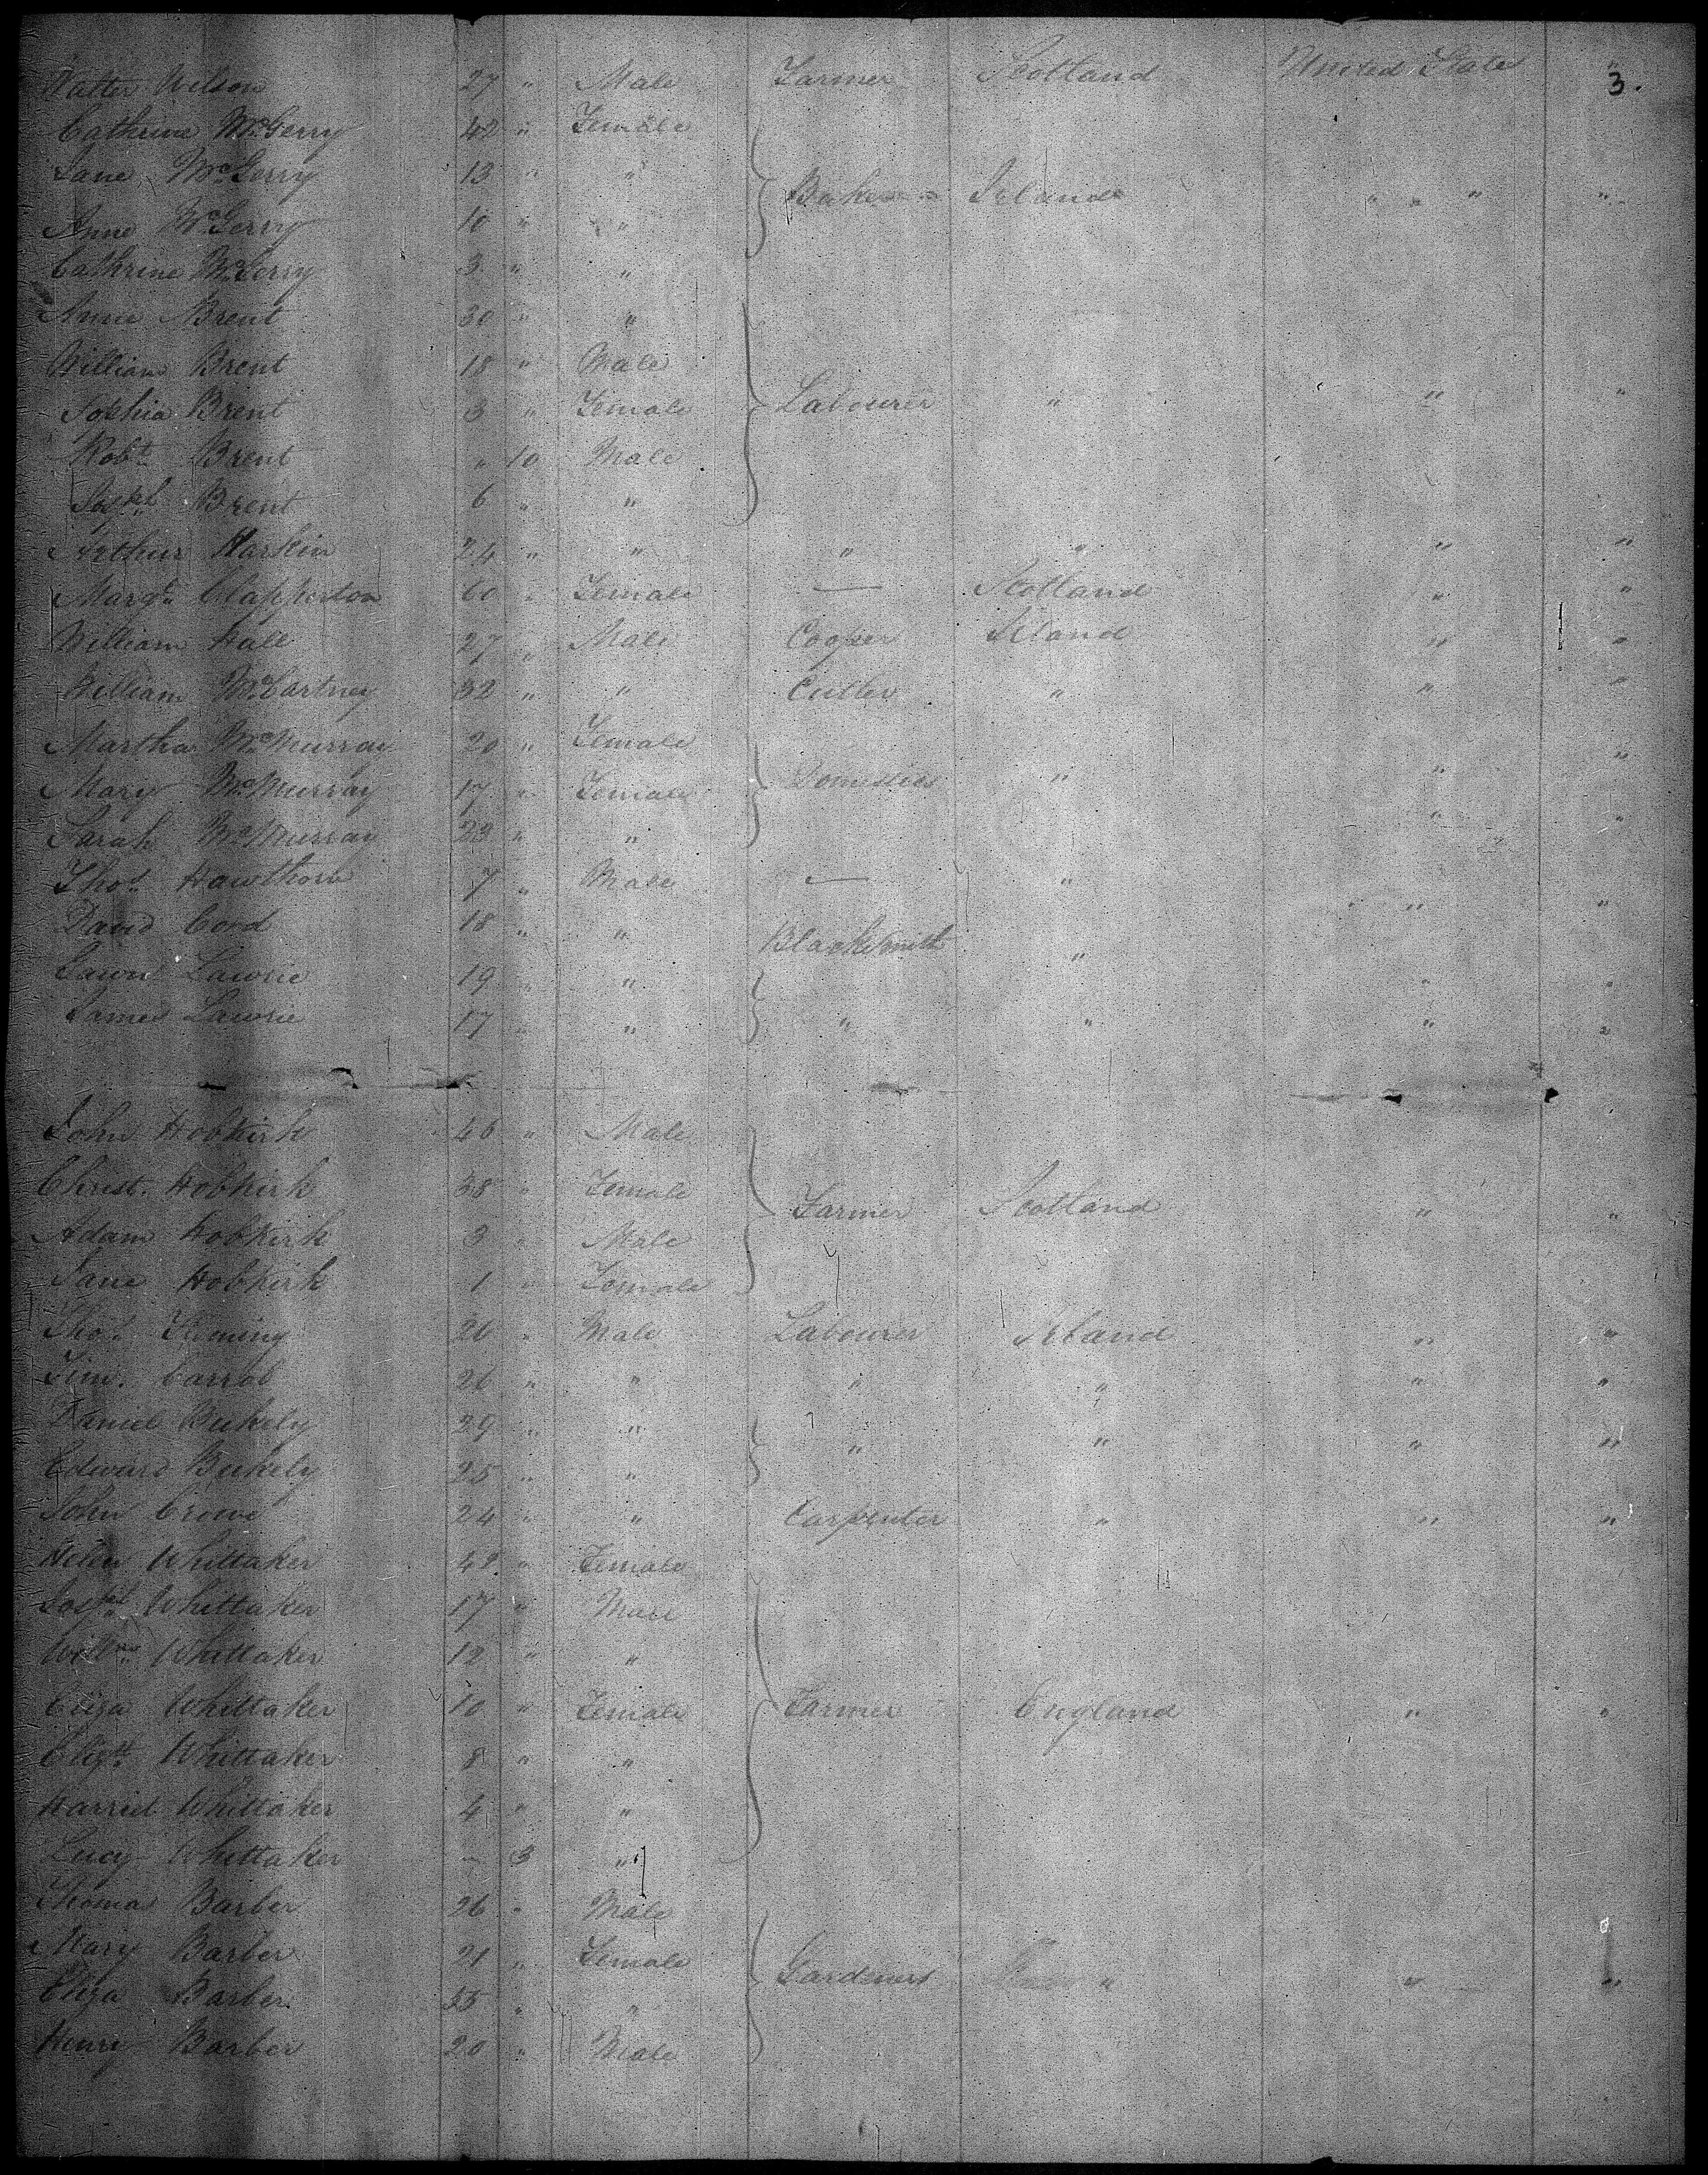 Walter Wilson 27 " Male Farmer Scotland United States "
3.
Cathrine McGerry 42 " Female
Jane McGerry 13 " "
Baker Ireland " " "
Anne McGerry 10 " "
Cathrine McGerry 3 " "
Anne Brent 30 " "
William Brent 18 " Male
Sophia Brent 3 " Female Labourer " " "
Robt Brent " 10 Male
Josph Brent 6 " "
Arthur Harkin 24 " " " " " "
Margt Clapperton 60 " Female — Scotland " "
William Hall 27 " Male Cooper Ireland " "
William McCartney 32 " " Cutler " " "
Martha McMurray 20 " Female
Mary McMurray 17 " Female Domestics " " "
Sarah McMurray 22 " " " "
Thos Hawthorn 7 " Male — " " "
David Cord 18 " " Blacksmith "
Lawrie 19 " " " "
James Lawrie 17 " " " " " "
John Hobkirk 46 " Male
Christ. Hobkirk 38 " Female Farmer Scotland " "
Adam Hobkirk 3 " Male
Jane Hobkirk 1 " Female
Thos Fleming 26 " Male Labourer Ireland " "
Tim. Carrol 26 " " " " " "
Daniel Bukely 29 " " " " " "
Edward Bukely 25 " "
John Crowe 24 " " Carpenter " " "
Helen Whittaker 42 " Female
Josph Whittaker 17 " Male
Willm Whittaker 12 " "
Eliza Whittaker 10 " Female Farmer England " "
Elizth Whittaker 8 " "
Harriet Whittaker 4 " "
Lucy Whittaker — 3 "
Thomas Barber 26 " Male
Mary Barber 21 " Female Gardeners " " "
Eliza Barber 55 " "
Henry Barber 20 " Male